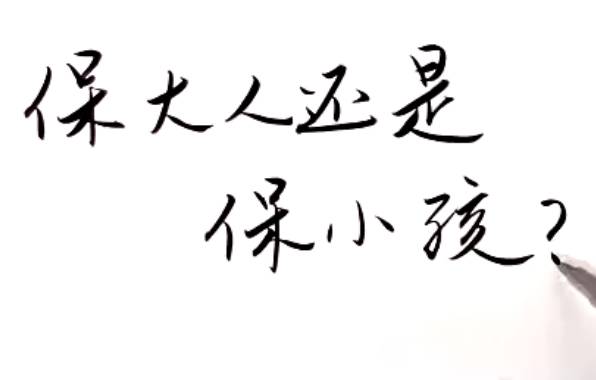 保大人还是
保小孩?